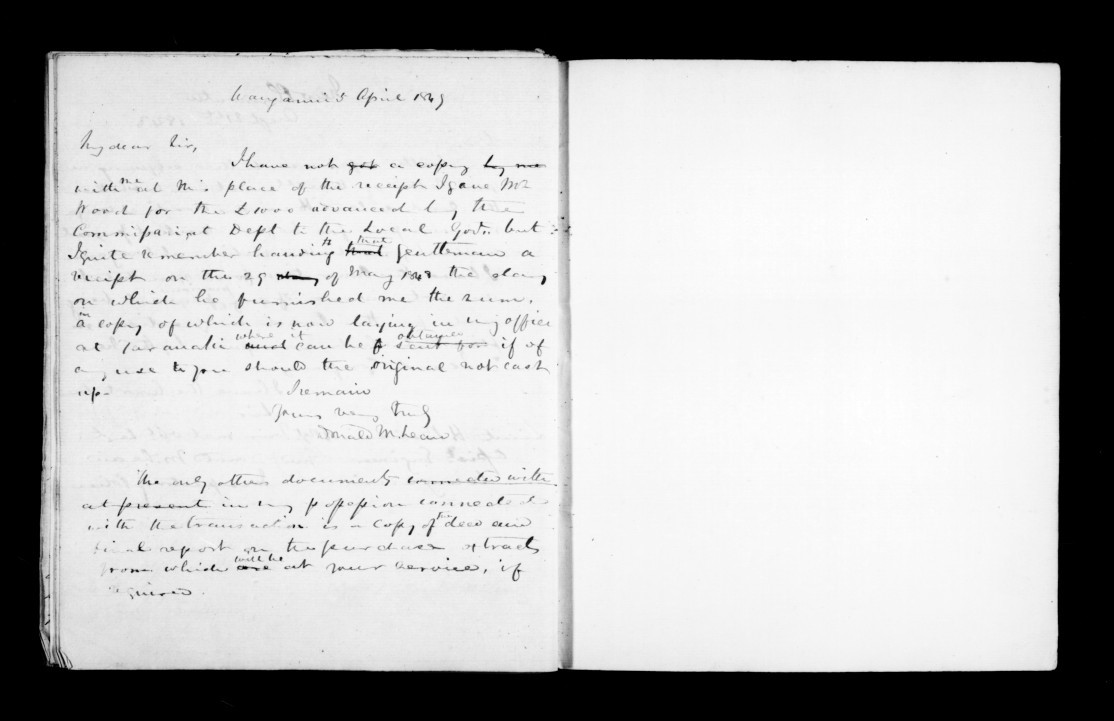 Wanganui 5 April 1849
My dear Sir,
I have not got a copy by me
with me at this place of the receipt I gave Mr
Wood for the £1000 advanced by the
Commissariat Dept to the Local Govt. but
I quite remember handing to that gentleman a
receipt on the 29 of May 1848 the day
on which he furnished me the sum,
a copy of which is now laying in my office
at Taranaki where it and can be obtained sent for if of
any use to you should the original not cast
up.
I remain
Yours very truly
Donald McLean
The only other documents connected with
at present in my possession connected
with the transaction is a copy of the deed and
final report on the purchase extracts
from which will be are at your service, if
required.